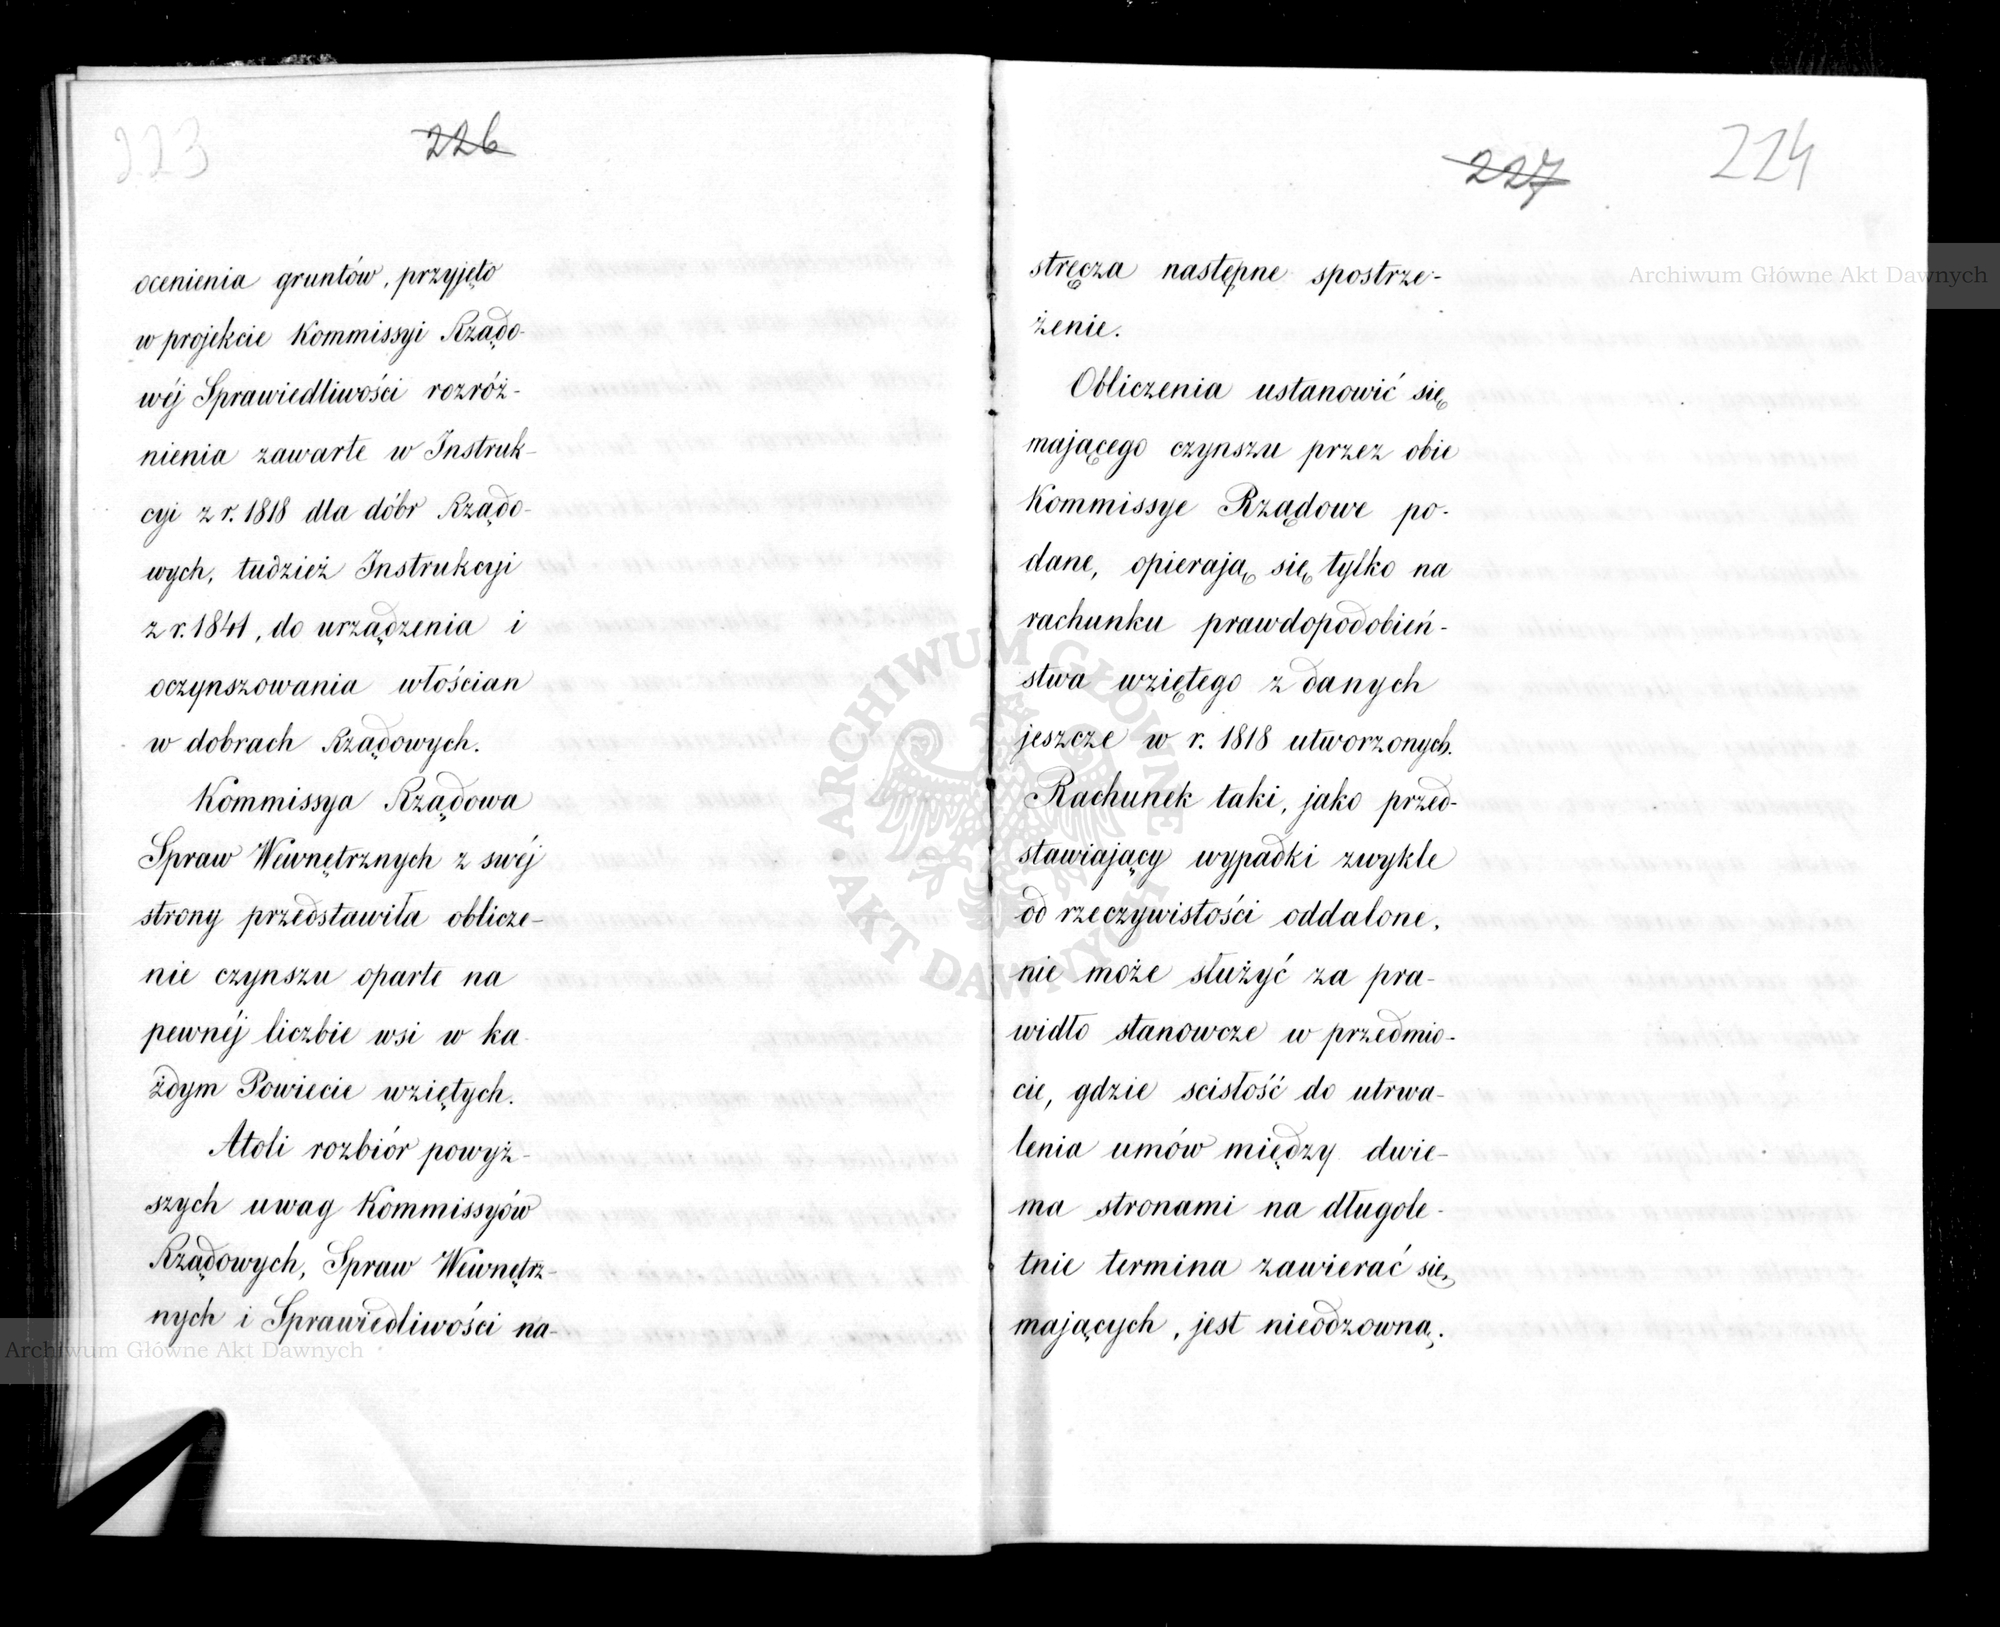 223
226
ocenienia gruntów, przyjęto
w projekcie Kommissyi Rządo-
wéj Sprawiedliwości rozróż-
nienia zawarte w Instruk-
cyi z r. 1818 dla dóbr Rządo-
wych, tudzież Instrukcyi
z r. 1841, do urządzenia i
oczynszowania włościan
w dobrach Rządowych.
Kommissya Rządowa
Spraw Wewnętrznych z swéj
strony przedstawiła oblicze-
nie czynszu oparte na
pewnéj liczbie wsi w ka-
żdym Powiecie wziętych.
Atoli rozbiór powyż-
szych uwag Kommissyów
Rządowych, Spraw Wewnętrz-
nych i Sprawiedliwości na-
227
224
stręcza następne spostrze-
żenie.
Obliczenia ustanowić się
mającego czynszu przez obie
Kommissye Rządowe po-
dane, opierają się tylko na
rachunku prawdopodobień-
stwa wziętego z danych
jeszcze w r. 1818 utworzonych.
Rachunek taki, jako przed-
stawiający wypadki zwykle
od rzeczywistości oddalone,
nie może służyć za pra-
widło stanowcze w przedmio-
cie, gdzie scisłość do utrwa-
lenia umów między dwie-
ma stronami na długole-
tnie termina zawierać się
mających, jest nieodzowną.
Archiwum Główne Akt Dawnych
Archiwum Główne Akt Dawnych
ARCHIWUM GŁÓWNE
AKT DAWNYCH